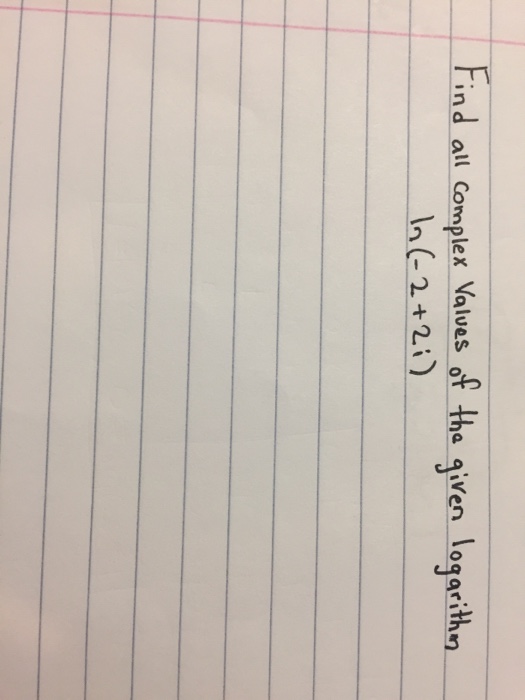 Find all Complex Values of the given logarithm
ln(-2+2i)